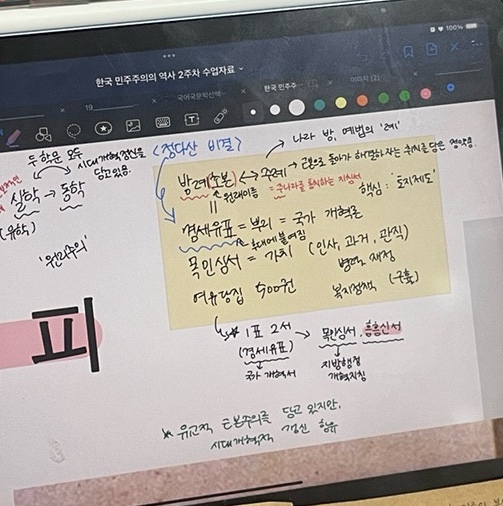 100%
한국 민주주의의 역사 2주차 수업자료
19
국어국문학산책
한국 민주주
이미지 (2)
두 학문 모두
시대개혁정신을
담고있음.
<정다산 비결>
나라 방, 예법의 '례'
실학 → 동학
(유학)
'원리주의'
방례(초본) ↔ 주례 → 근본으로 돌아가 해결하자는 취지를 담은 경향.
원래이름 = 주나라를 통치하는 지침서
핵심 : '토지제도'
경세유표 = 뿌리 = 국가 개혁론
후대에 붙여짐
목민심서 = 가치 (인사, 과거, 관직)
여유당집 500권
복지정책 (구휼)
1표 2서 → 목민심서, 흠흠신서
(경세유표)
국가 개혁서
지방행정
개혁지침
피
유교적 근본주의를 담고 있지만,
시대개혁적 갱신 함유